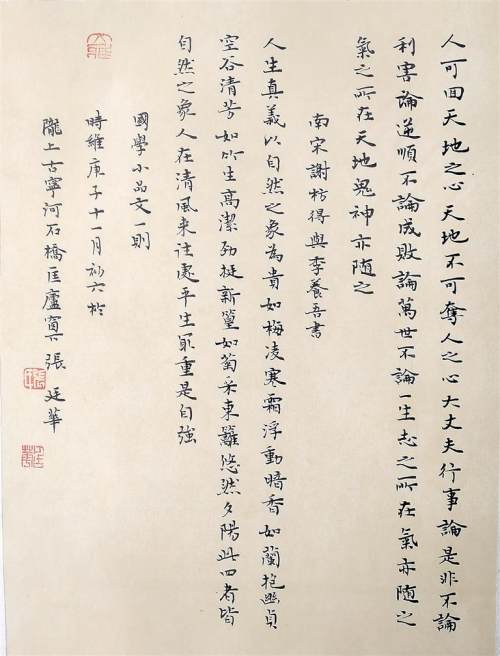 人可回天地之心天地不可奪人之心大丈夫行事論是非不論
利害論逆順不論成敗論萬世不論一生志之所在氣亦隨之
氣之所在天地鬼神亦隨之
南宋謝枋得與李養吾書
人生真義以自然之象為貴如梅凌寒霜浮動暗香如蘭抱幽貞
空谷清芳如竹生高潔勁挺新篁如菊采東籬悠然夕陽此四者皆
自然之象人在清風來往處平生最重是自強
國學小品文一則
時維庚子十一月初六於
隴上古寧河石橋匡廬窗下張廷華